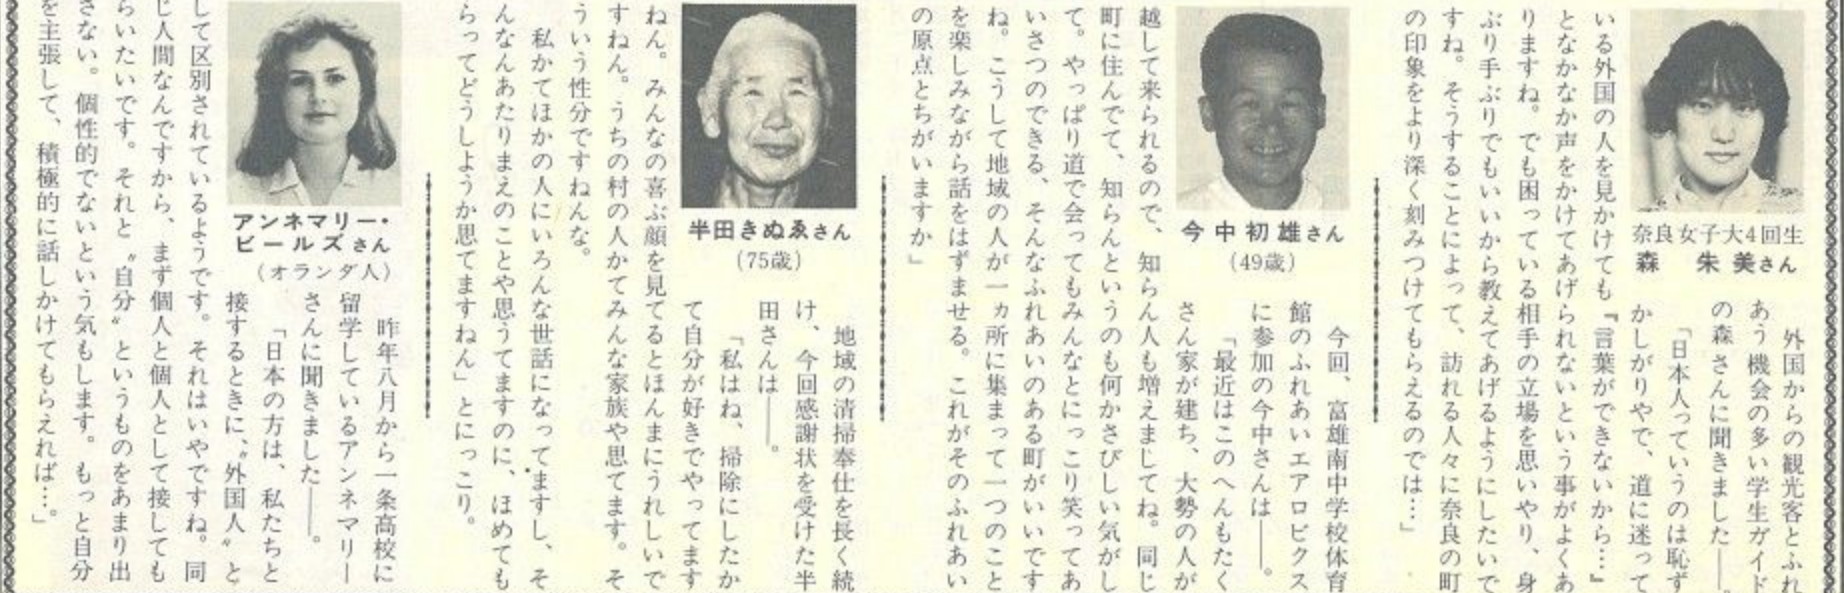 奈良女子大4回生
森　朱美さん
外国からの観光客とふれ
あう機会の多い学生ガイド
の森さんに聞きました――。
「日本人っていうのは恥ず
かしがりやで、道に迷って
いる外国の人を見かけても『言葉ができないから…』
となかなか声をかけてあげられないという事がよくあ
りますね。でも困っている相手の立場を思いやり、身
ぶり手ぶりでもいいから教えてあげるようにしたいで
すね。そうすることによって、訪れる人々に奈良の町
の印象をより深く刻みつけてもらえるのでは…」
今中初雄さん
（49歳）
今回、富雄南中学校体育
館のふれあいエアロビクス
に参加の今中さんは――。
「最近はこのへんもたく
さん家が建ち、大勢の人が
越して来られるので、知らん人も増えましてね。同じ
町に住んでて、知らんというのも何かさびしい気がし
て。やっぱり道で会ってもみんなとにっこり笑ってあ
いさつのできる、そんなふれあいのある町がいいです
ね。こうして地域の人が一ヵ所に集まって一つのこと
を楽しみながら話をはずませる。これがそのふれあい
の原点とちがいますか」
半田きぬゑさん
（75歳）
地域の清掃奉仕を長く続
け、今回感謝状を受けた半
田さんは――。
「私はね、掃除にしたか
て自分が好きでやってます
ねん。みんなの喜ぶ顔を見てるとほんまにうれしいで
すねん。うちの村の人かてみんな家族や思てます。そ
ういう性分ですねんな。
私かてほかの人にいろんな世話になってますし、そ
んなんあたりまえのことや思うてますのに、ほめても
らってどうしようか思てますねん」とにっこり。
アンネマリー・
ビールズさん
（オランダ人）
昨年八月から一条高校に
留学しているアンネマリー
さんに聞きました――。
「日本の方は、私たちと
接するときに、〝外国人〟と
して区別されているようです。それはいやですね。同
じ人間なんですから、まず個人と個人として接しても
らいたいです。それと〝自分〟というものをあまり出
さない。個性的でないという気もします。もっと自分
を主張して、積極的に話しかけてもらえれば…。」